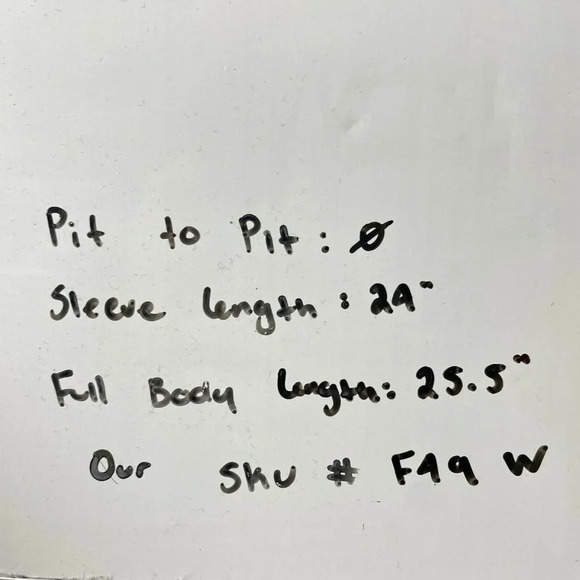 Pit to Pit: Ø
Sleeve Length: 24"
Full Body Length: 25.5"
Our SKU # F49 W